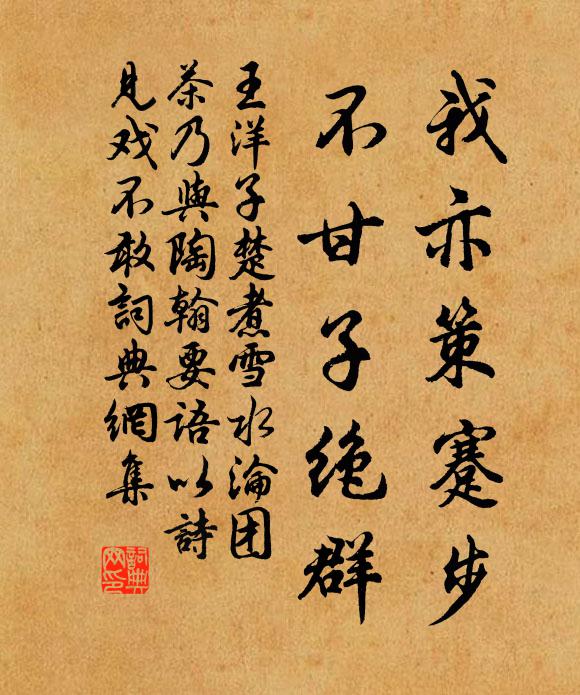 我亦策蹇步
不甘子绝群
王洋子楚煮雪水淪团
茶乃與陶翰要语以詩
見戏不敢詞典網集
詞典
网印